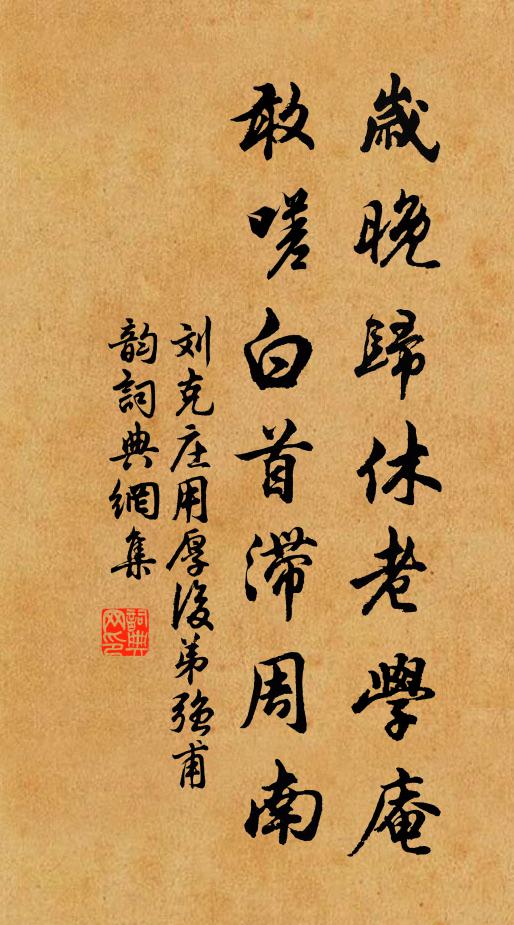 歲晚歸休老學庵
敢嗟白首滯周南
刘克庄用厚後弟强甫
韵詞典網集
詞典網印